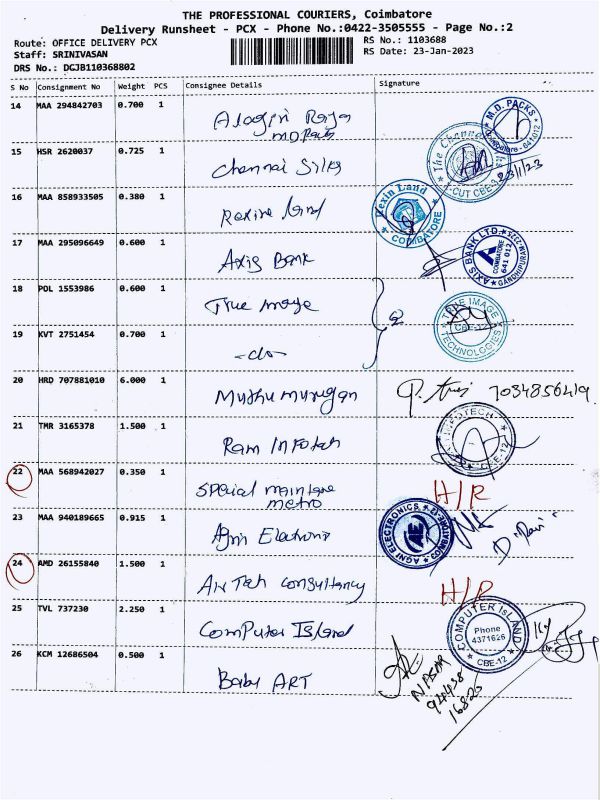 THE PROFESSIONAL COURIERS, Coimbatore
Delivery Runsheet - PCX - Phone No.:0422-3505555 - Page No.:2
Route: OFFICE DELIVERY PCX
RS No.: 1103688
Staff: SRINIVASAN
RS Date: 23-Jan-2023
DRS No.: DCJB110368802
S No Consignment No Weight PCS Consignee Details Signature
14 MAA 294842703 0.700 1
M.D. Packs
M.D. PACKS
15 HSR 2620037 0.725 1 Chennai Silks
23/1/23
16 MAA 858933505 0.380 1 Rexine Land
Rexin Land
COIMBATORE
17 MAA 295096649 0.600 1 Axis Bank
AXIS BANK LTD.
COIMBATORE
641 012
18 POL 1553986 0.600 1 True Image
2
TRUE IMAGE
CBE-12
TECHNOLOGIES
19 KVT 2751454 0.700 1 -do-
20 HRD 707881010 6.000 1 Muthu Murugan
7034856419
21 TMR 3165378 1.500 1 Ram Infotech
INFOTECH
CBE-12
22 MAA 568942027 0.350 1 Special
metro
H/R
23 MAA 940189665 0.915 1 Agni Electronis
AGNI ELECTRONICS
COIMBATORE-12
24 AMD 26155840 1.500 1 Air Tech Consultancy
H/R
25 TVL 737230 2.250 1 Computer Island
COMPUTER ISLAND
Phone
4371626
CBE-12
26 KCM 12686504 0.500 1 Baby ART